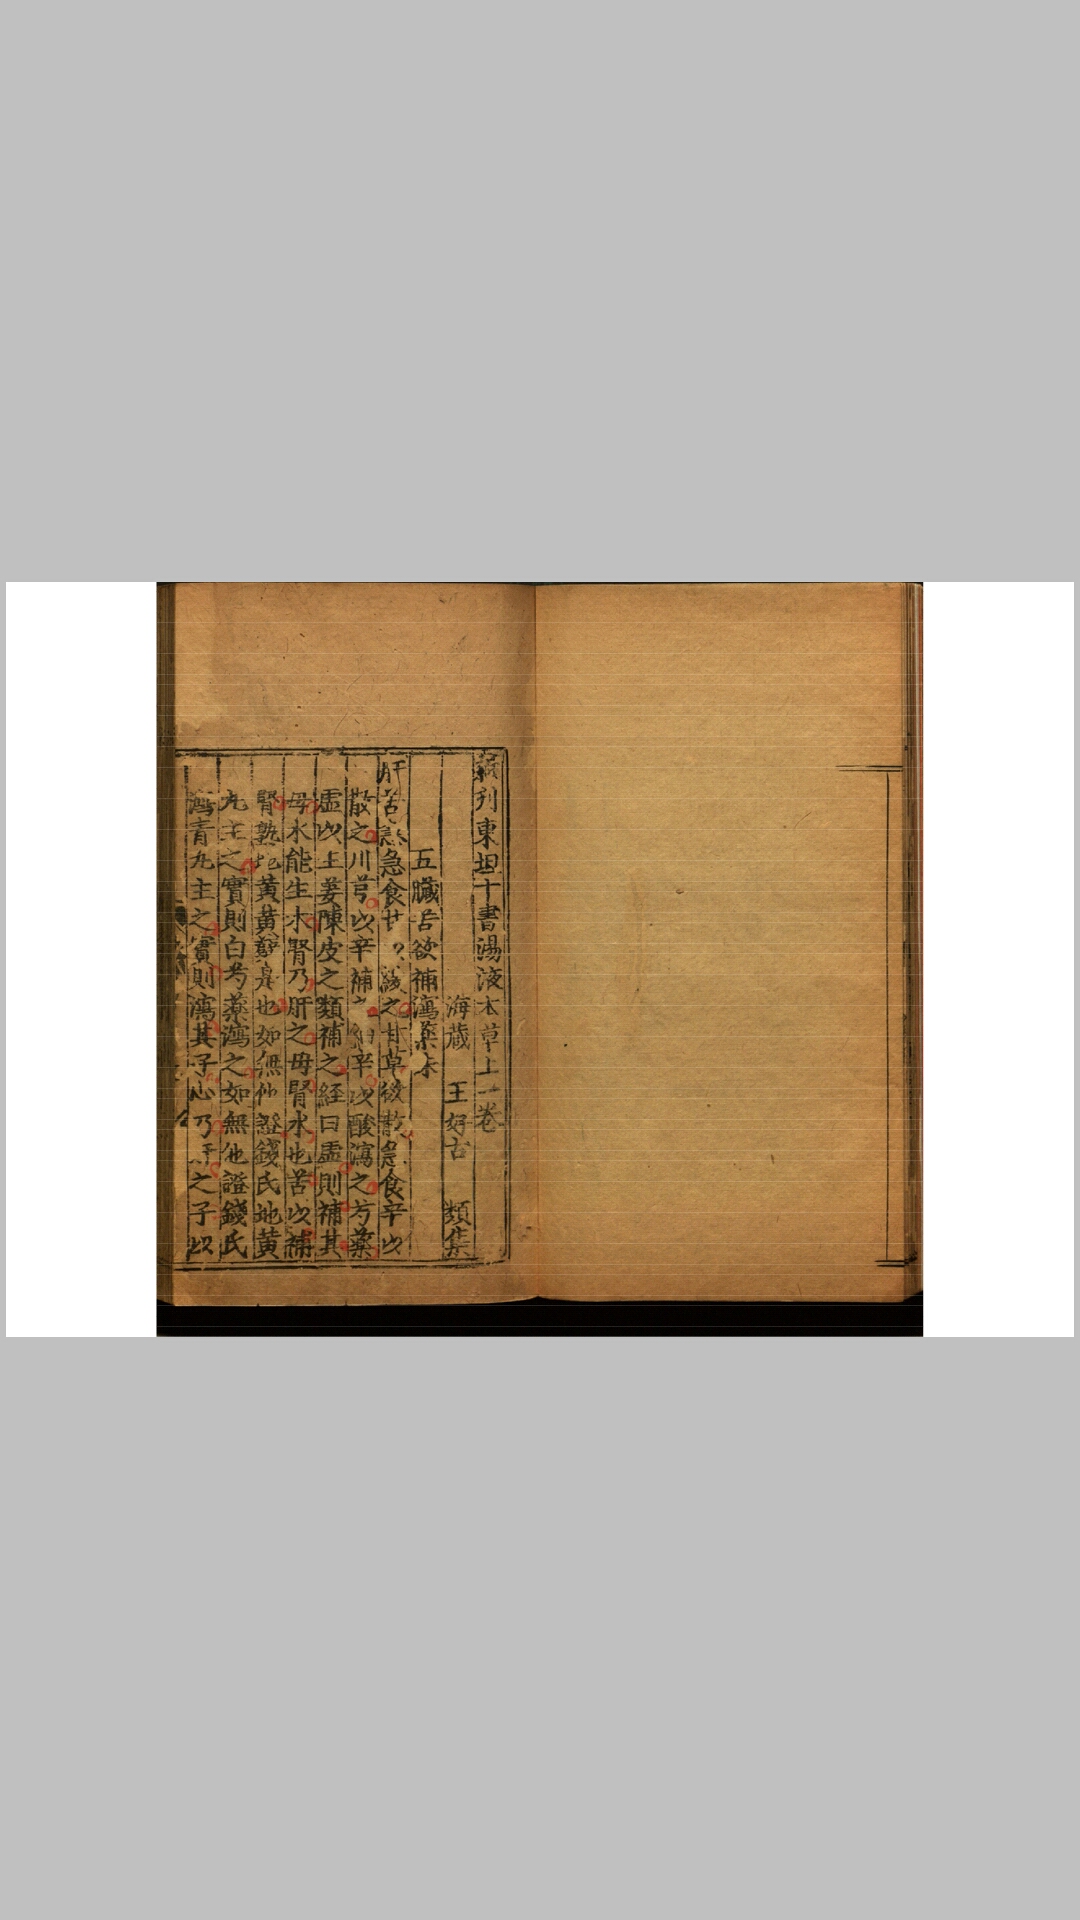 刋東垣十書湯液本草上一卷
海藏 王好古 類集
五臟苦欲補瀉藥味
肝苦急急食甘以緩之甘草欲散急食辛以
散之川芎以辛補之細辛以酸瀉之芍藥
虛以生姜陳皮之類補之経曰虛則補其
母水能生木腎乃肝之母腎水也苦以補
腎熟地黃黃蘗是也如無他證錢氏地黃
丸主之實則白芍藥瀉之如無他證錢氏
瀉青丸主之實則瀉其子心乃肝之子以